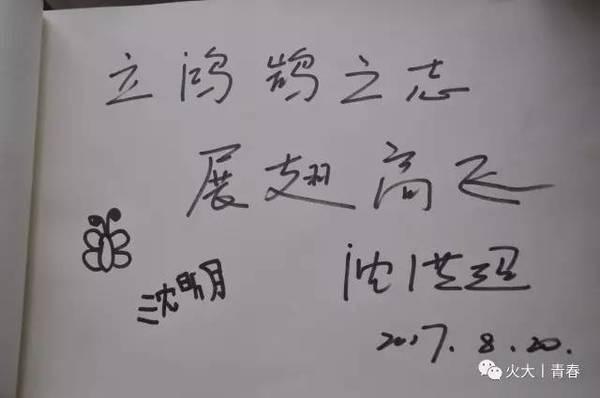 立鸿鹄之志
展翅高飞
沈明月
沈洪超
2017.8.20.
火大丨青春